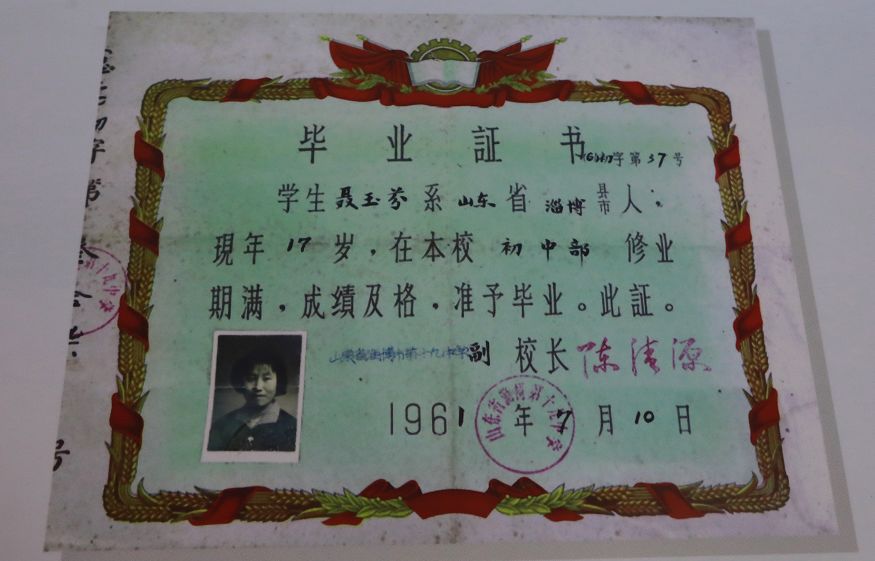 毕业証书
初字第37号
学生聂玉芬系山东省淄博县市人,
現年17岁,在本校初中部修业
期满,成績及格,准予毕业。此証。
山东省淄博市第十九中学副校长陈清源
1961年7月10日
山东省淄博第十九中学
初字第
号